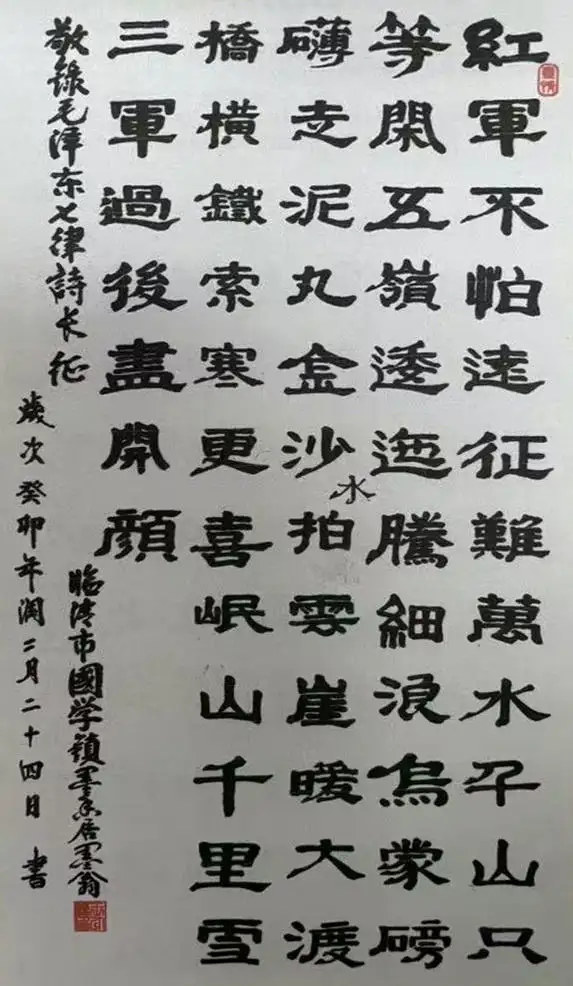 紅軍不怕遠征難萬水千山只
等閑五嶺逶迤騰細浪烏蒙磅
礴走泥丸金沙水拍雲崖暖大渡
橋橫鐵索寒更喜岷山千里雪
三軍過後盡開顏
敬錄毛澤东七律詩长征
歲次癸卯年閏二月二十四日 書
臨清市國学镇墨香居墨翁